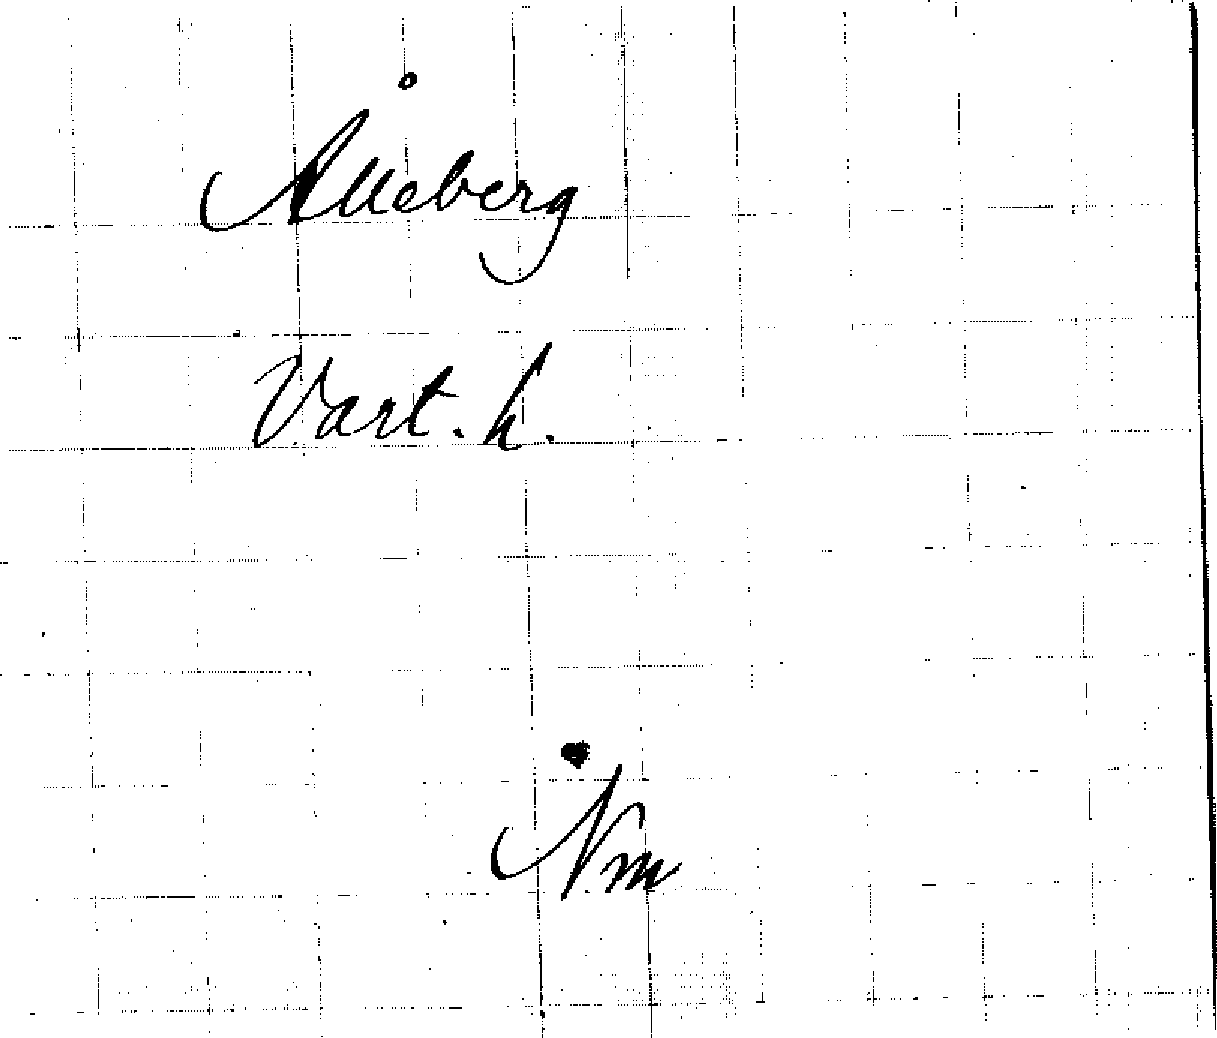 Ålleberg
Vart. h.
Nm